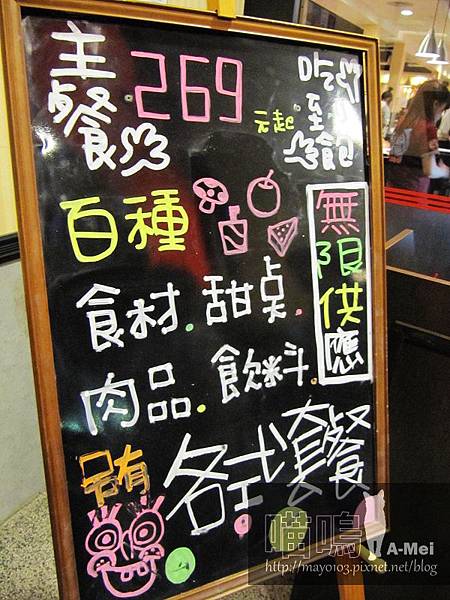 主餐269元起
吃到至飽
百種
食材.甜桌
肉品.飲料.
無限供應
另有
各式套餐
喵嗚
A-Mei
http://mayo103.pixnet.net/blog